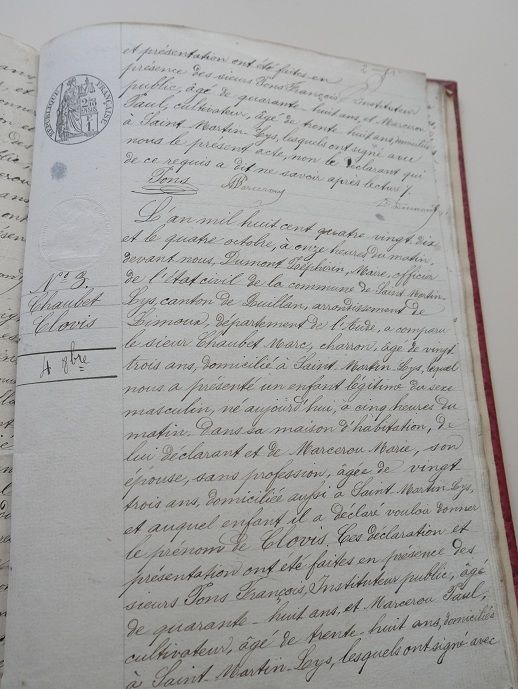 et présentation ont été faites en
présence des sieurs Fons François, Instituteur
public, âgé de quarante huit ans, et Marcerou
Paul, cultivateur, âgé de trente huit ans, domiciliés
à Saint Martin Lys, lesquels ont signé avec
nous le présent acte, non le déclarant qui
de ce requis a dit ne savoir après lecture.
Fons Marcerou Dumont
REPUBLIQUE FRANÇAISE
N° 3.
Chaubet
Clovis
4 8bre
L'an mil huit cent quatre vingt dix
et le quatre octobre, à onze heures du matin,
devant nous, Dumont Zéphirin, Maire, officier
de l'état civil de la commune de Saint Martin
Lys, canton de Quillan, arrondisment de
Limoux, département de l'Aude, a comparu
le sieur Chaubet Marc, charron, âgé de vingt
trois ans, domicilié à Saint Martin Lys, lequel
nous a présenté un enfant légitime du sexe
masculin, né aujourd'hui, à cinq heures du
matin. Dans sa maison d'habitation, de
lui déclarant et de Marcerou Marie, son
épouse, sans profession, âgée de vingt
trois ans, domiciliée aussi à Saint Martin Lys,
et auquel enfant il a déclaré vouloir donner
le prénom de Clovis. Ces déclaration et
présentation ont été faites en présence des
sieurs Fons François, Instituteur public, âgé
de quarante-huit ans, et Marcerou Paul,
cultivateur, âgé de trente-huit ans, domiciliés
à Saint-Martin-Lys, lesquels ont signé avec